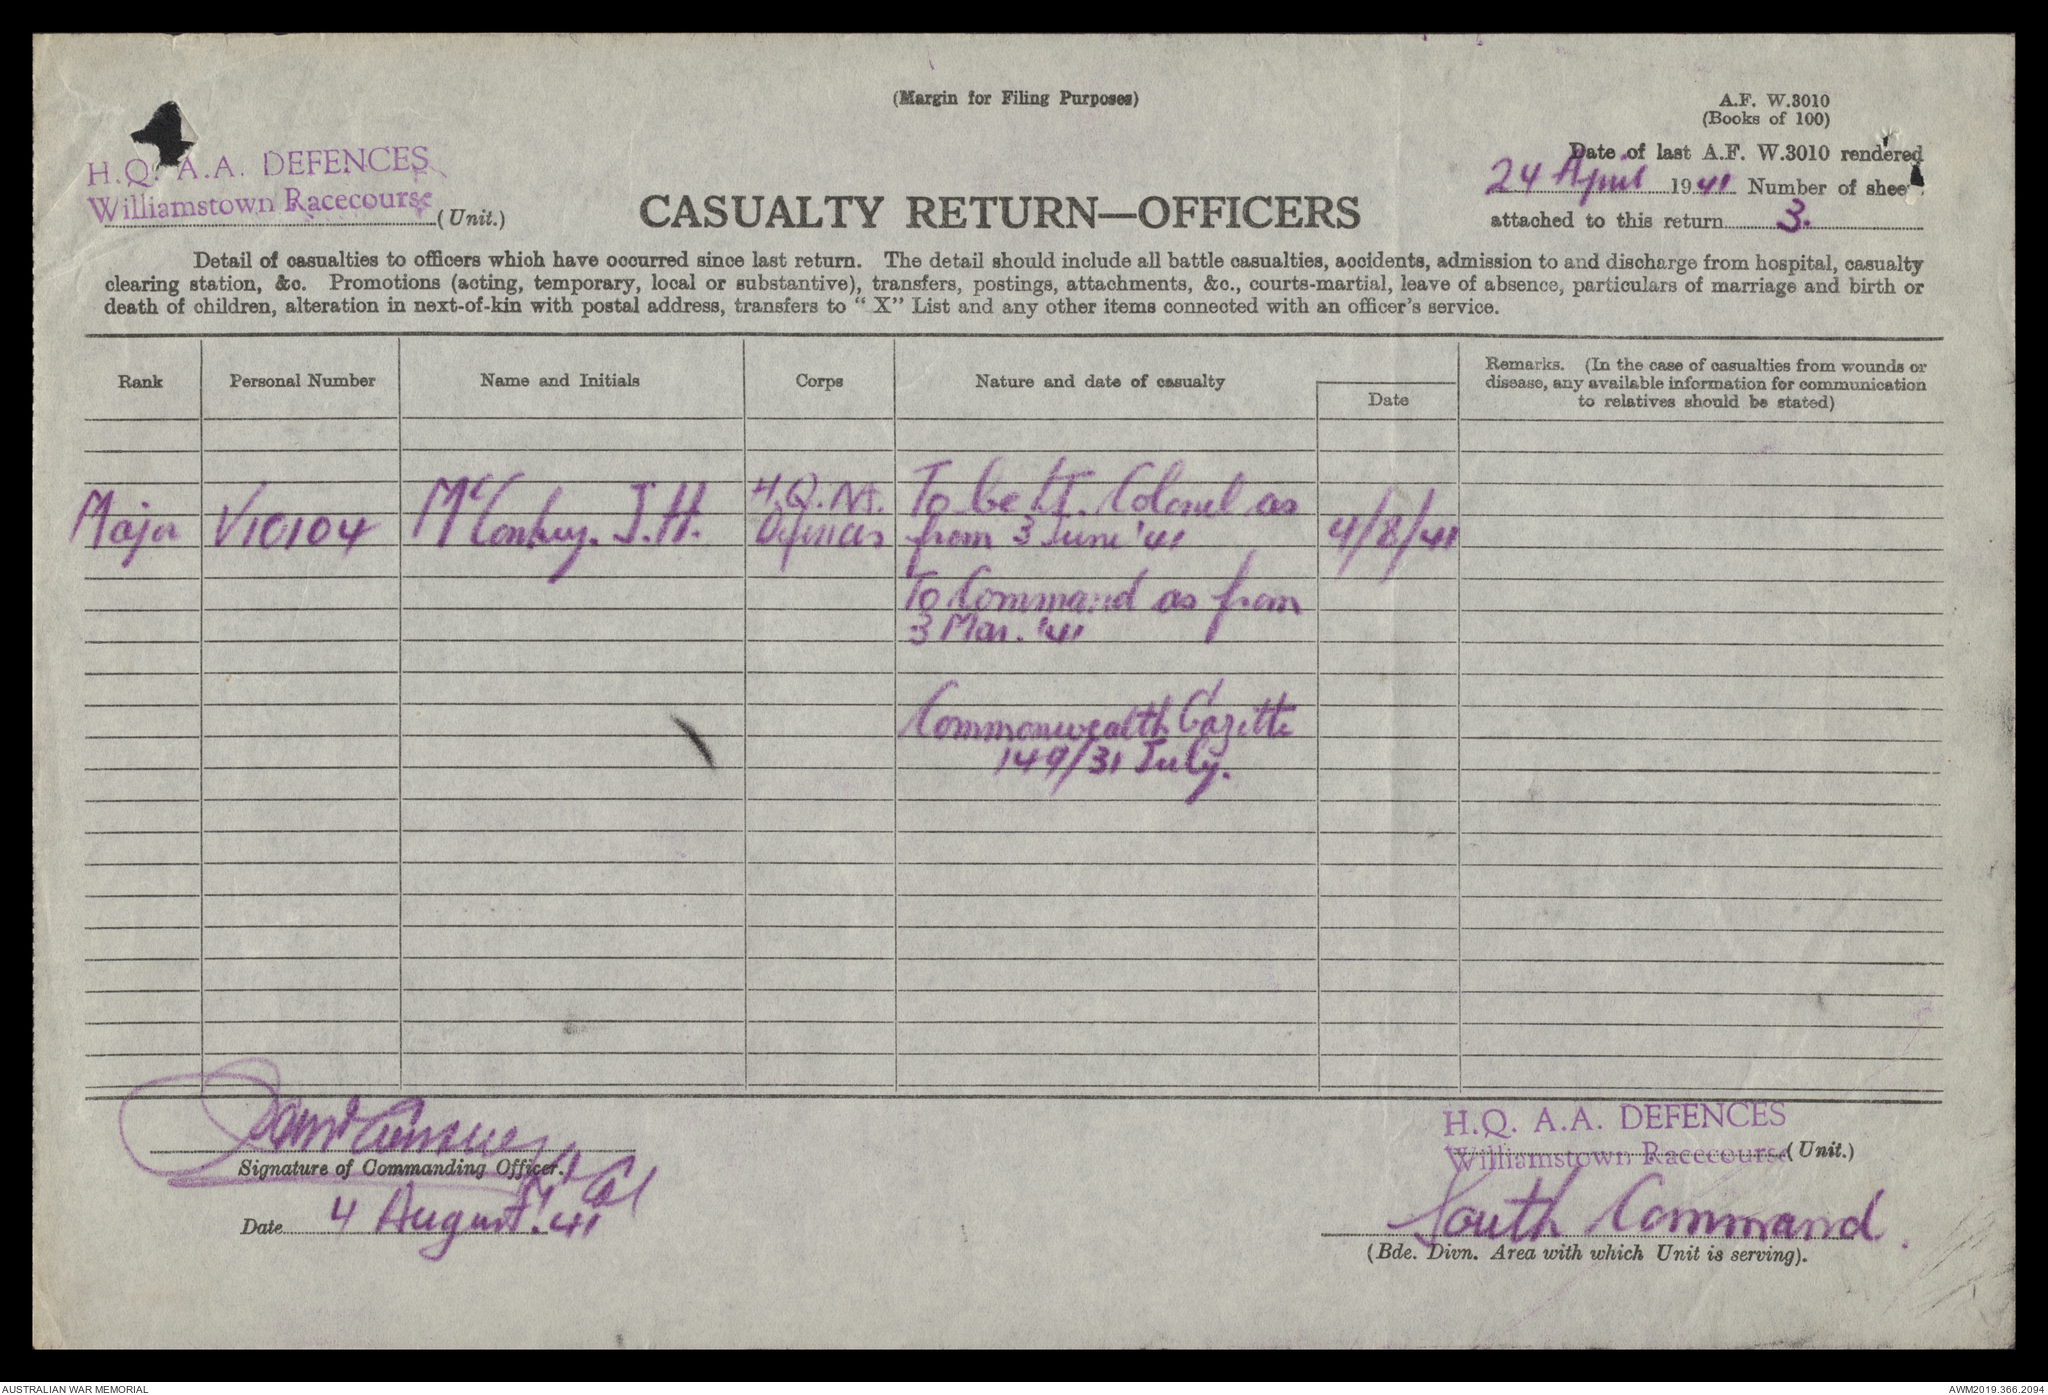 (Margin for Filing Purposes)
A.F. W.3010
(Books of 100)
H.Q. A.A. DEFENCES
Williamstown Racecourse (Unit.)
CASUALTY RETURN—OFFICERS
Date of last A.F. W.3010 rendered
24 April 1941 Number of shee
attached to this return 3.
Detail of casualties to officers which have occurred since last return. The detail should include all battle casualties, accidents, admission to and discharge from hospital, casualty
clearing station, &c. Promotions (acting, temporary, local or substantive), transfers, postings, attachments, &c., courts-martial, leave of absence, particulars of marriage and birth or
death of children, alteration in next-of-kin with postal address, transfers to "X" List and any other items connected with an officer's service.
Rank
Personal Number
Name and Initials
Corps
Nature and date of casualty
Date
Remarks. (In the case of casualties from wounds or
disease, any available information for communication
to relatives should be stated)
Major V10104 McConkey. J.H.
H.Q. AA.
Defences
To be Lt. Colonel as
from 3 June '41
4/8/41
To Command as from
3 Mar. '41
Commonwealth Gazette
149/31 July.
Lt Col
Signature of Commanding Officer.
Date 4 August. 41
H.Q. A.A. DEFENCES
Williamstown Racecourse (Unit.)
South Command.
(Bde. Divn. Area with which Unit is serving).
AUSTRALIAN WAR MEMORIAL
AWM2019.366.2094